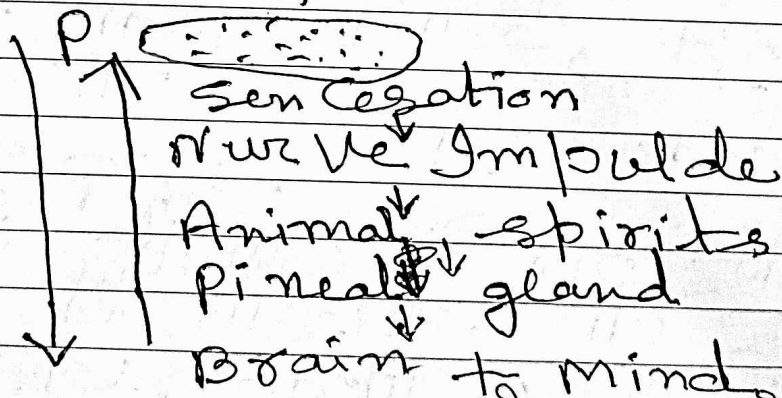 P
Sencesation
Nurve Impulde
Animal spirits
Pineal gland
Brain to mind.